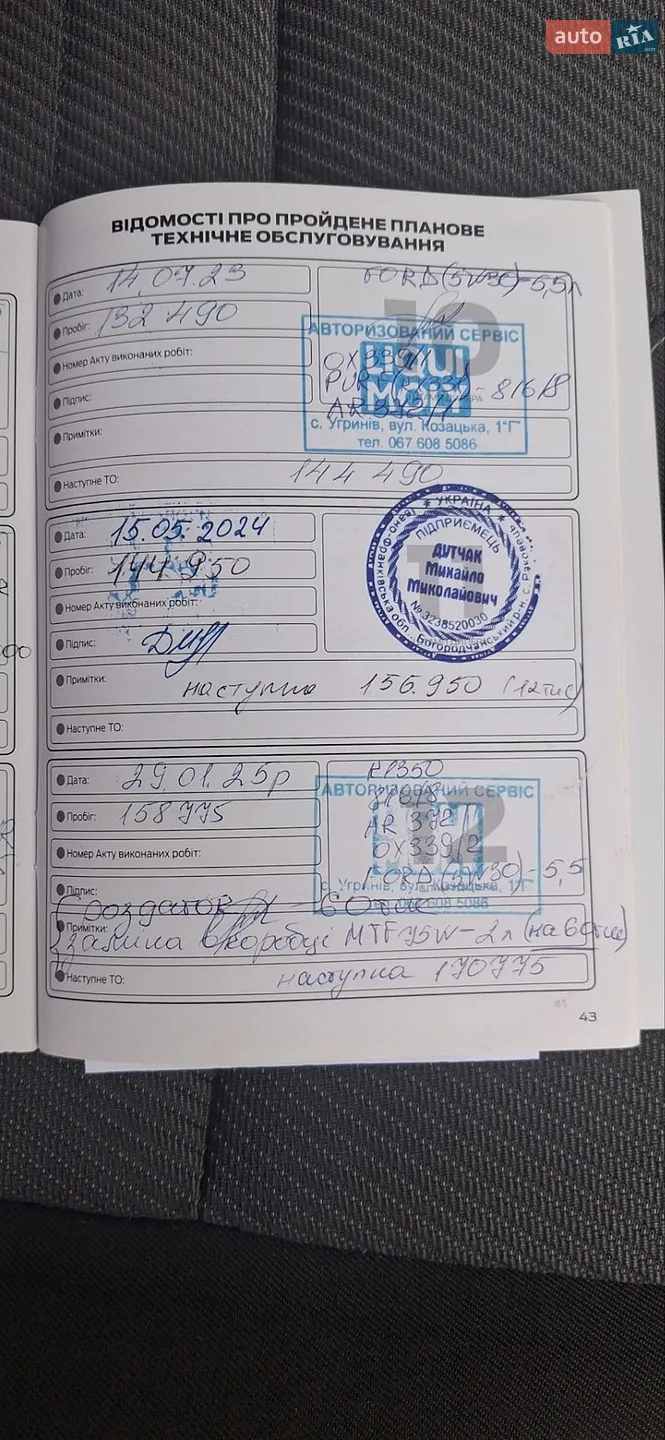 auto RIA.com
ВІДОМОСТІ ПРО ПРОЙДЕНЕ ПЛАНОВЕ
ТЕХНІЧНЕ ОБСЛУГОВУВАННЯ
Дата: 14.07.23
FORD (5W30)-5,5л
Пробіг: 132 490
10
АВТОРИЗОВАНИЙ СЕРВІС
Номер Акту виконаних робіт:
OX339/1
Підпис:
- 816/8
AR 372/1
Примітки:
с. Угринів, вул. Козацька, 1"Г"
тел. 067 608 5086
Наступне ТО: 144 490
Дата: 15.05.2024
Пробіг: 144 950
Номер Акту виконаних робіт:
Підпис:
УКРАЇНА
ПІДПРИЄМЕЦЬ
ДУТЧАК
Михайло
Миколайович
№ 3238520030
Примітки: наступна 156.950 (12тис)
Наступне ТО:
Дата: 29.01.25р
KP350
АВТОРИЗОВАНИЙ СЕРВІС
Пробіг: 158 775
12
816/8
AR 372/1
Номер Акту виконаних робіт:
OX339/2
FORD (5W30)-5,5
Підпис:
с. Угринів, вул. Козацька, 1"Г"
608 5086
роздаток
60тис
Примітки:
заміна в коробці MTF 75W-2л (на 60тис)
Наступне ТО: наступна 170775
43